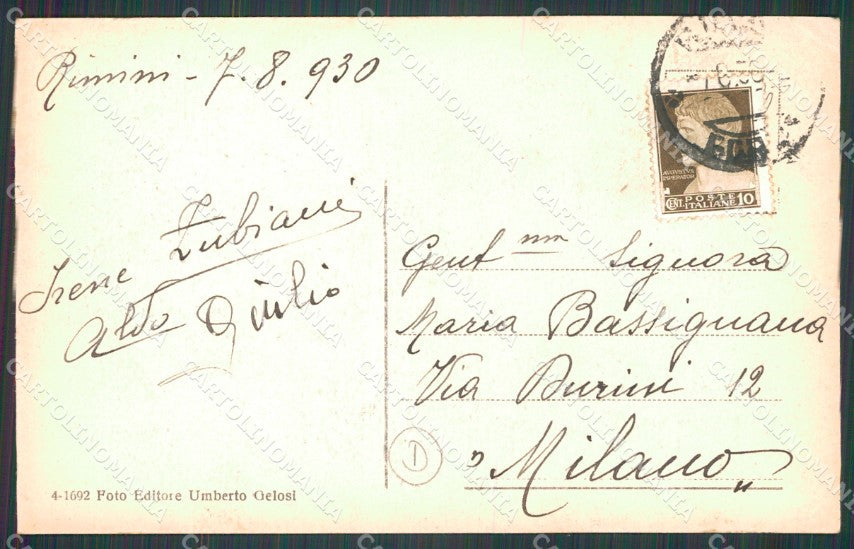 Rimini - 7.8.930
Irene Zubiani
Aldo Giulio
4-1692 Foto Editore Umberto Gelosi
AVGVSTVS
IMPERATOR
POSTE
CENT. ITALIANE 10
Gent nma Signora
Maria Bassignana
Via Burini 12
"Milano"
D
CARTOLINOMANIA